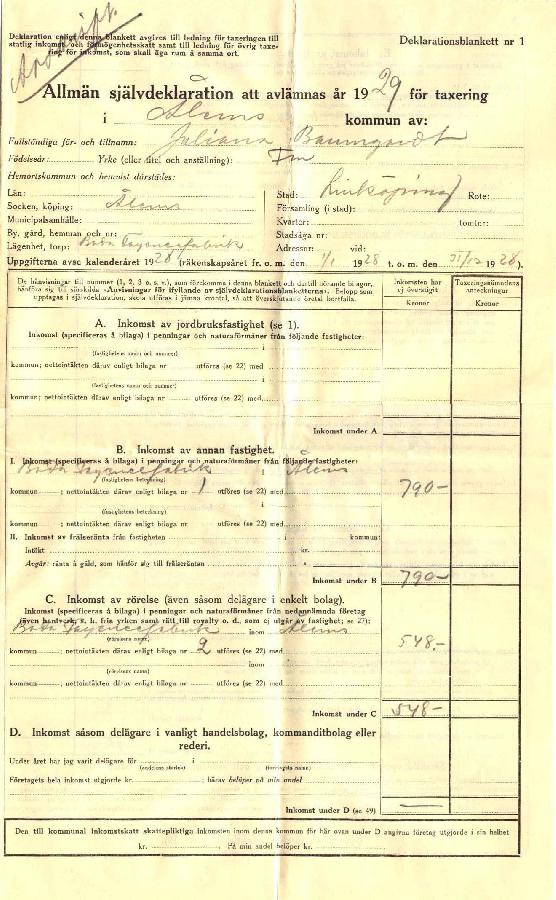 Avskrift.
Deklaration enligt denna blankett avgives till ledning för taxeringen till
statlig inkomst- och förmögenhetsskatt samt till ledning för övrig taxe-
ring för inkomst, som skall äga rum å samma ort.
Deklarationsblankett nr 1
Allmän självdeklaration att avlämnas år 1929 för taxering
i Ålems kommun av:
Fullständiga för- och tillnamn: Juliana Baumgardt
Födelseår: Yrke (eller titel och anställning): Fru
Hemortskommun och hemvist därstädes:
Län:
Socken, köping: Ålems
Municipalsamhälle:
By, gård, hemman och nr:
Lägenhet, torp: Boda Fayencefabrik
Stad: Linköping Rote:
Församling (i stad):
Kvarter: tomtnr:
Stadsäga nr:
Adresser: vid:
Uppgifterna avse kalenderåret 1928 (räkenskapsåret fr. o. m. den 1/1 1928 t. o. m. den 31/12 1928).
De hänvisningar till nummer (1, 2, 3 o. s. v.), som förekomma i denna blankett och därtill hörande bilagor,
hänföra sig till särskilda «Anvisningar för ifyllande av självdeklarationsblanketterna». Belopp som
upptagas i självdeklaration, skola utföras i jämna krontal, så att överskjutande öretal bortfalla.
Inkomsten har
ej överstigit
Kronor
Taxeringsnämndens
anteckningar
Kronor
A. Inkomst av jordbruksfastighet (se 1).
Inkomst (specificeras å bilaga) i penningar och naturaförmåner från följande fastigheter:
i
(fastighetens namn och nummer)
kommun; nettointäkten därav enligt bilaga nr utföres (se 22) med
i
(fastighetens namn och nummer)
kommun; nettointäkten därav enligt bilaga nr utföres (se 22) med
Inkomst under A
B. Inkomst av annan fastighet.
I. Inkomst (specificeras å bilaga) i penningar och naturaförmåner från följande fastigheter:
Boda Fayencefabrik i Ålems
(fastighetens beteckning)
kommun ; nettointäkten därav enligt bilaga nr 1 utföres (se 22) med 790-
i
(fastighetens beteckning)
kommun ; nettointäkten därav enligt bilaga nr utföres (se 22) med
II. Inkomst av frälseränta från fastigheten i kommun:
Intäkt kr.
Avgår: ränta å gäld, som hänför sig till frälseräntan »
Inkomst under B 790-
C. Inkomst av rörelse (även såsom delägare i enkelt bolag).
Inkomst (specificeras å bilaga) i penningar och naturaförmåner från nedannämnda företag
(även hantverk, s. k. fria yrken samt rätt till royalty o. d., som ej utgår av fastighet; se 27):
Boda Fayencefabrik inom Ålems
(rörelsens namn)
kommun ; nettointäkten därav enligt bilaga nr 2 utföres (se 22) med 548.-
inom
(rörelsens namn)
kommun ; nettointäkten därav enligt bilaga nr utföres (se 22) med
Inkomst under C 548-
D. Inkomst såsom delägare i vanligt handelsbolag, kommanditbolag eller
rederi.
Under året har jag varit delägare för i
(andelens storlek) (företagets namn)
Företagets hela inkomst utgjorde kr. ; härav belöper på min andel
Inkomst under D (se 49)
Den till kommunal inkomstskatt skattepliktiga inkomsten inom denna kommun för här ovan under D angivna företag utgjorde i sin helhet
kr. På min andel belöper kr.